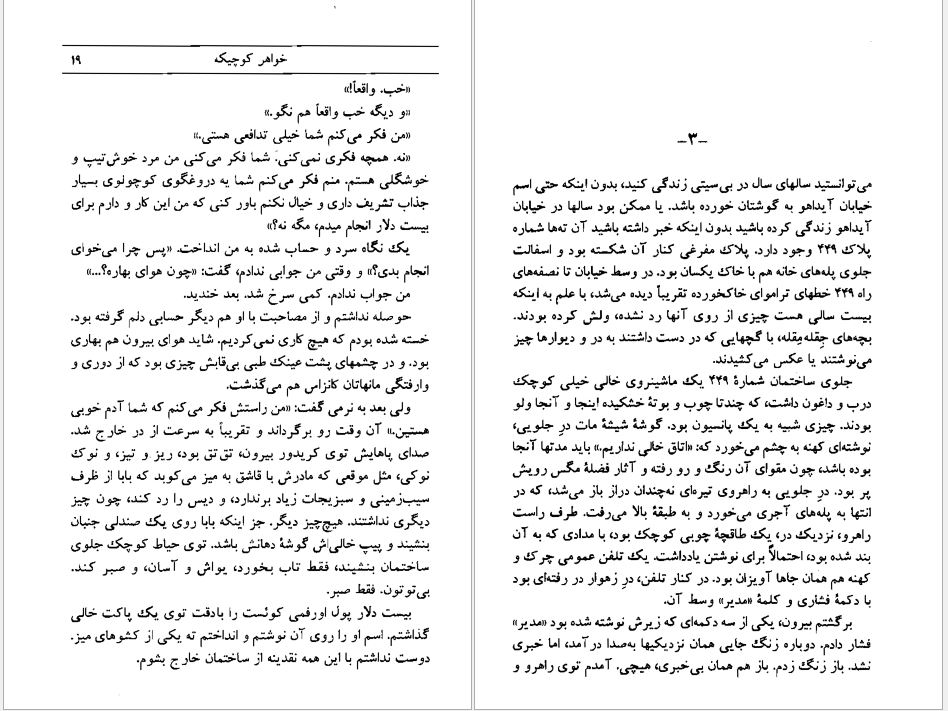 خواهر کوچیکه
۱۹
«خب. واقعاً!»
«و دیگه خب واقعاً هم نگو.»
«من فکر می‌کنم شما خیلی تدافعی هستی.»
«نه. همچه فکری نمی‌کنی. شما فکر می‌کنی من مرد خوش‌تیپ و
خوشگلی هستم. منم فکر می‌کنم شما یه دروغگوی کوچولوی بسیار
جذاب تشریف داری و خیال نکنم باور کنی که من این کار و دارم برای
بیست دلار انجام میدم، مگه نه؟»
یک نگاه سرد و حساب شده به من انداخت. «پس چرا می‌خوای
انجام بدی؟» و وقتی من جوابی ندادم، گفت: «چون هوای بهاره؟...»
من جواب ندادم. کمی سرخ شد. بعد خندید.
حوصله نداشتم و از مصاحبت با او هم دیگر حسابی دلم گرفته بود.
خسته شده بودم که هیچ کاری نمی‌کردیم. شاید هوای بیرون هم بهاری
بود. و در چشمهای پشت عینک طبی بی‌قابش چیزی بود که از دوری و
وارفتگی مانهاتان کانزاس هم می‌گذشت.
ولی بعد به نرمی گفت: «من راستش فکر می‌کنم که شما آدم خوبی
هستین.» آن وقت رو برگرداند و تقریباً به سرعت از در خارج شد.
صدای پاهایش توی کریدور بیرون، تق‌تق بود، ریز و تیز، و نوک
نوکی، مثل موقعی که مادرش با قاشق به میز می‌کوبد که بابا از ظرف
سیب‌زمینی و سبزیجات زیاد برندارد، و دیس را رد کند، چون چیز
دیگری نداشتند. هیچ‌چیز دیگر. جز اینکه بابا روی یک صندلی جنبان
بنشیند و پیپ خالی‌اش گوشهٔ دهانش باشد. توی حیاط کوچک جلوی
ساختمان بنشیند، فقط تاب بخورد، یواش و آسان، و صبر کند.
بی‌توتون. فقط صبر.
بیست دلار پول اورفمی کوئست را بادقت توی یک پاکت خالی
گذاشتم. اسم او را روی آن نوشتم و انداختم ته یکی از کشوهای میز.
دوست نداشتم با این همه نقدینه از ساختمان خارج بشوم.
–۳–
می‌توانستید سالهای سال در بی‌سیتی زندگی کنید، بدون اینکه حتی اسم
خیابان آیداهو به گوشتان خورده باشد. یا ممکن بود سالها در خیابان
آیداهو زندگی کرده باشید بدون اینکه خبر داشته باشید آن ته‌ها شماره
پلاک ۴۴۹ وجود دارد. پلاک مفرغی کنار آن شکسته بود و اسفالت
جلوی پله‌های خانه هم با خاک یکسان بود. در وسط خیابان تا نصفه‌های
راه ۴۴۹ خطهای تراموای خاکخورده تقریباً دیده می‌شد، با علم به اینکه
بیست سالی هست چیزی از روی آنها رد نشده، ولش کرده بودند.
بچه‌های جِقله‌مِقله، با گچهایی که در دست داشتند به در و دیوارها چیز
می‌نوشتند یا عکس می‌کشیدند.
جلوی ساختمان شمارهٔ ۴۴۹ یک ماشینروی خالی خیلی کوچک
درب و داغون داشت، که چندتا چوب و بوتهٔ خشکیده اینجا و آنجا ولو
بودند. چیزی شبیه به یک پانسیون بود. گوشهٔ شیشهٔ مات درِ جلویی،
نوشته‌ای کهنه به چشم می‌خورد که: «اتاق خالی نداریم.» باید مدتها آنجا
بوده باشد، چون مقوای آن رنگ و رو رفته و آثار فضلهٔ مگس رویش
پر بود. درِ جلویی به راهروی تیره‌ای نه‌چندان دراز باز می‌شد، که در
انتها به پله‌های آجری می‌خورد و به طبقهٔ بالا می‌رفت. طرف راست
راهرو، نزدیک در، یک طاقچهٔ چوبی کوچک بود، با مدادی که به آن
بند شده بود، احتمالاً برای نوشتن یادداشت. یک تلفن عمومی چرک و
کهنه هم همان جاها آویزان بود. در کنار تلفن، درِ زهوار در رفته‌ای بود
با دکمهٔ فشاری و کلمهٔ «مدیر» وسط آن.
برگشتم بیرون، یکی از سه دکمه‌ای که زیرش نوشته شده بود «مدیر»
فشار دادم. دوباره زنگ جایی همان نزدیکیها به‌صدا درآمد، اما خبری
نشد. باز زنگ زدم. باز هم همان بی‌خبری، هیچی. آمدم توی راهرو و